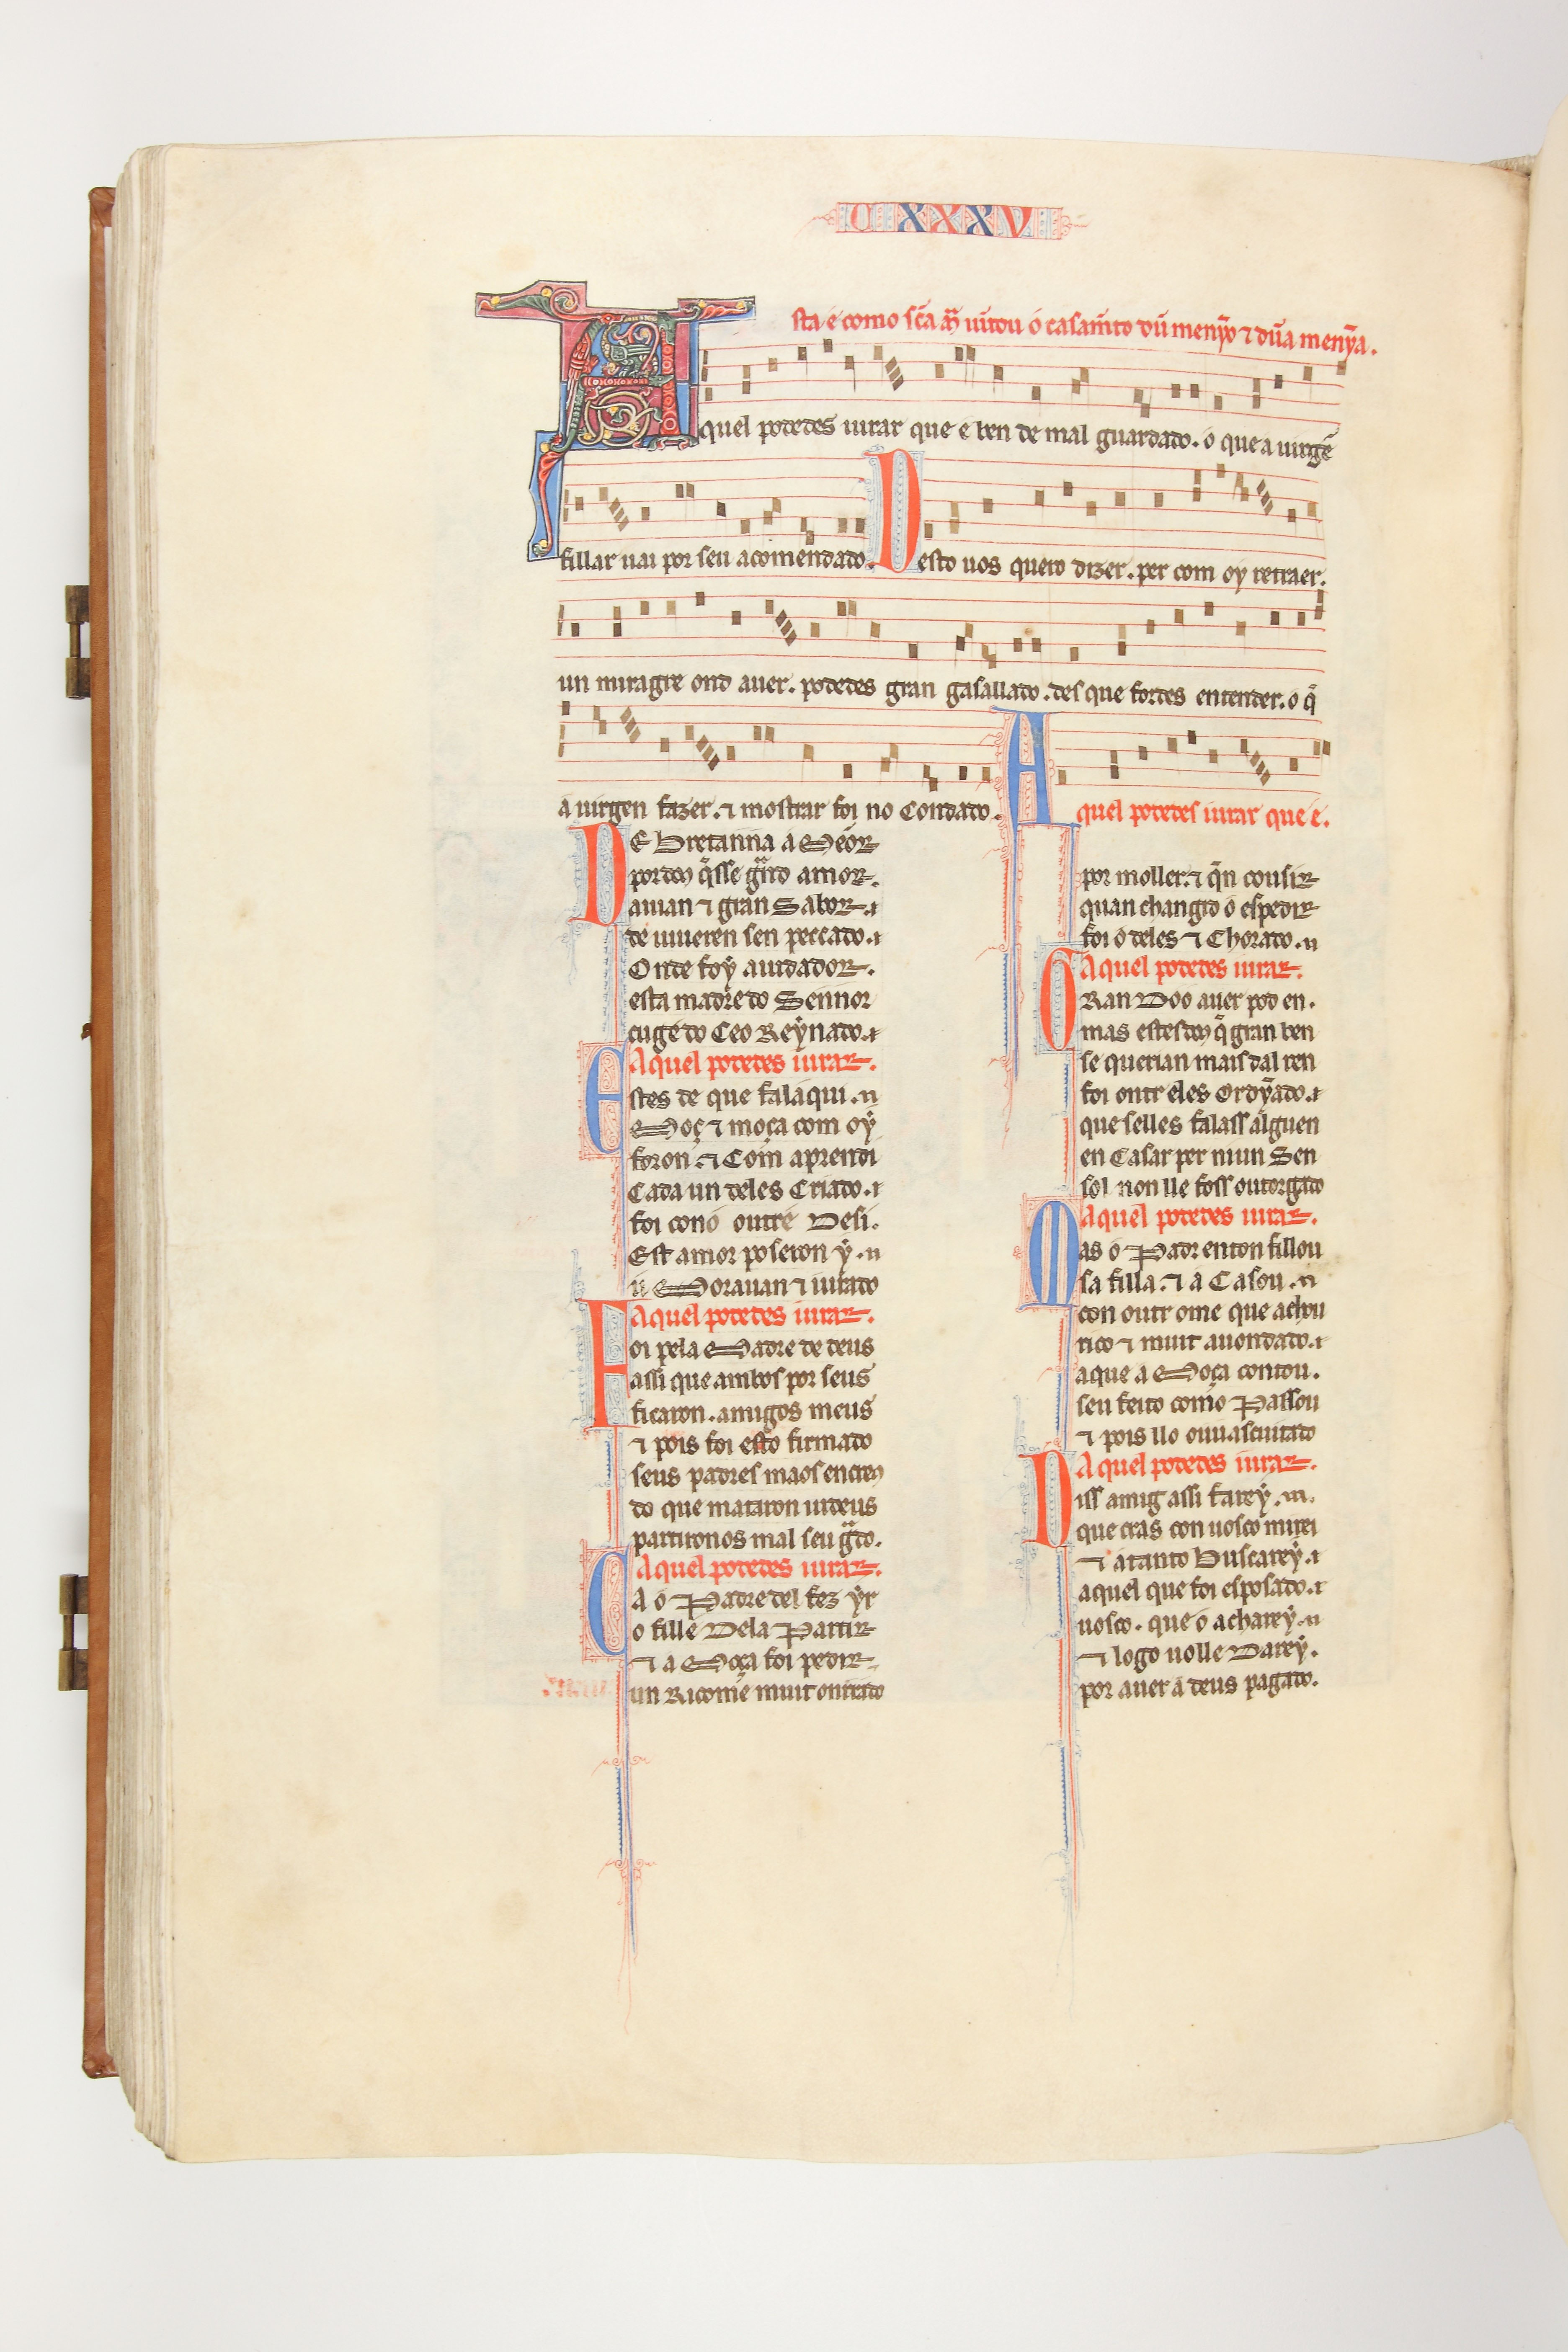 CXXXV
sta e como sc̃a m̃ uitou o casam̃to dũ meny̋o ⁊ dũa meny̋a.
Aquel podedes iurar que e ben de mal guardado. o que a uirgẽ
fillar uai por seu acomendado. Desto uos quero dizer. per com oy retraer.
un miragre ond auer. podedes gran gasallado. des que fordes entender. o q̃
a uirgen fazer. ⁊ mostrar foi no Condado. Aquel podedes iurar que e.
DE Bretanna a Meor
por
auian ⁊ gran Sabor
de uiueren sen peccado.
Onde foy aiudador.
esta madre do Sennor
cuge do Ceo Reynado.
Aquel podedes iurar.
Estes de que fal aqui.
Moç ⁊ moça com oy
foron. ⁊ Com aprendi
Cada un deles Criado.
foi cono outre Desi.
Est amor poseron y.
Morauan ⁊ iurado
Aquel podedes iurar.
Foi pela Madre de deus
assi que ambos por seus
ficaron. amigos meus
⁊ pois foi esto firmado
seus padres
do que mataron iudeus
partironos mal seu g̃do.
Aquel podedes iurar.
Ca o Padre del fez yr
o fill e Dela Partir
⁊ a Moça foi pedir
un Ricome muit onrrado
por moller. ⁊ q̃n cousir
quan changid o espedir
foi o deles ⁊ Chorado.
Aquel podedes iurar.
GRan Doo auer pod en.
mas estes q̃ gran ben
se querian mais dal ren
foi ontr eles Ordỹado.
que selles falass alguen
en Casar per niun Sen
sol non lle foss outorgado
Aquel podedes iurar.
Mas o Padr enton fillou
sa filla. ⁊ a Casou.
con outr ome que achou
rico ⁊ muit auondado.
a que a Moça contou.
seu feito como Passou
⁊ pois llo ouu ascuitado
Aquel podedes iurar.
Diss amig assi farey.
que cras con uosco mirei
⁊ atanto Buscarey.
aquel que foi esposado.
uosco. que o acharey.
⁊ logo uolle Darey.
por auer a deus pagado.